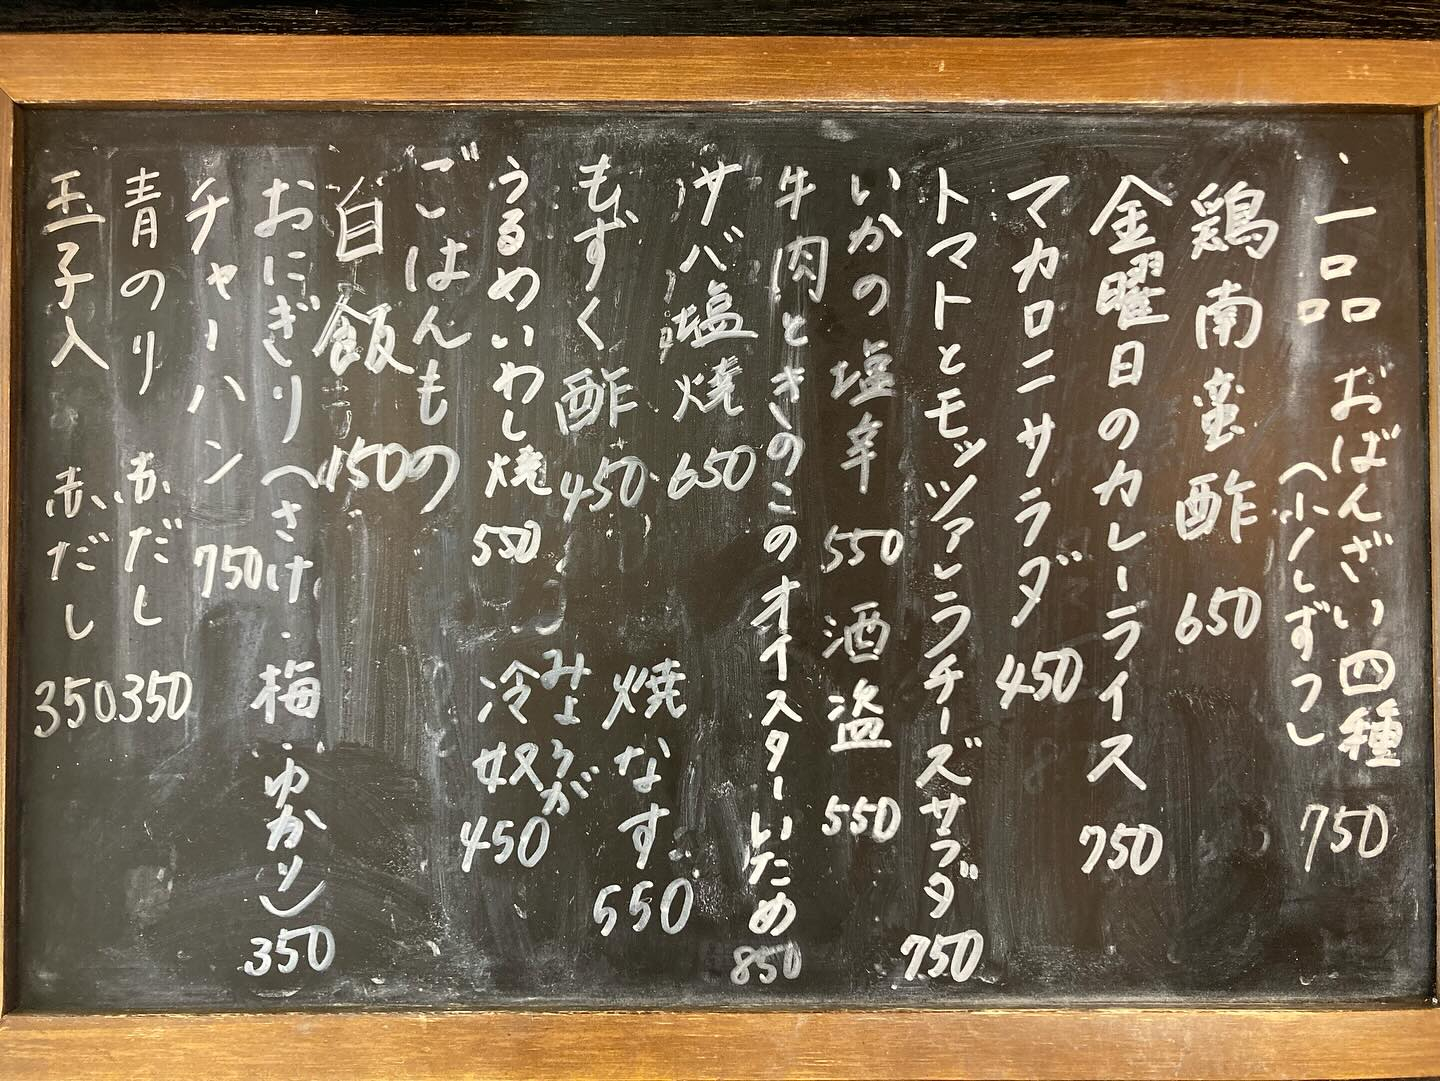 一品 おばんざい四種 750
(少しずつ)
鶏南蛮酢 650
金曜日のカレーライス 750
マカロニサラダ 450
トマトとモッツァレラチーズサラダ 750
いかの塩辛 550 酒盗 550
牛肉ときのこのオイスターいため 850
サバ塩焼 650
焼なす 550
もずく酢 450
みょうが
うるめいわし焼 550 冷奴 450
ごはんもの
白飯 150
おにぎり(さけ・梅・ゆかり) 350
チャーハン 750
青のり赤だし 350
玉子入赤だし 350